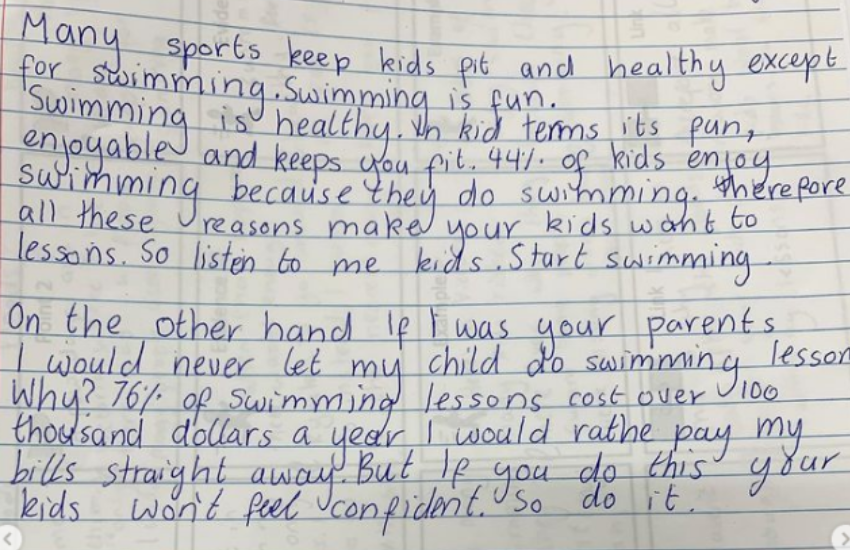 Many sports keep kids fit and healthy except
for swimming. Swimming is fun.
Swimming is healthy. In kid terms its fun,
enjoyable and keeps you fit. 44% of kids enjoy
swimming because they do swimming. therefore
all these reasons make your kids want to
lessons. So listen to me kids. Start swimming.
On the other hand If I was your parents
I would never let my child do swimming lesson
Why? 76% of swimming lessons cost over 100
thousand dollars a year I would rathe pay my
bills straight away. But If you do this your
kids won't feel confident. So do it.